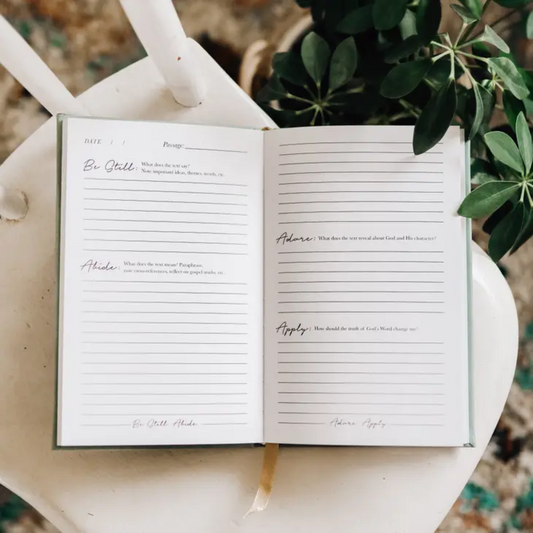 DATE / / Passage:
Be Still: What does the text say?
Note important ideas, themes, words, etc.
Abide: What does the text mean? Paraphrase,
use cross-references, reflect on gospel truths, etc.
Be Still Abide
Adore: What does the text reveal about God and His character?
Apply: How should the truth of God's Word change me?
Adore Apply